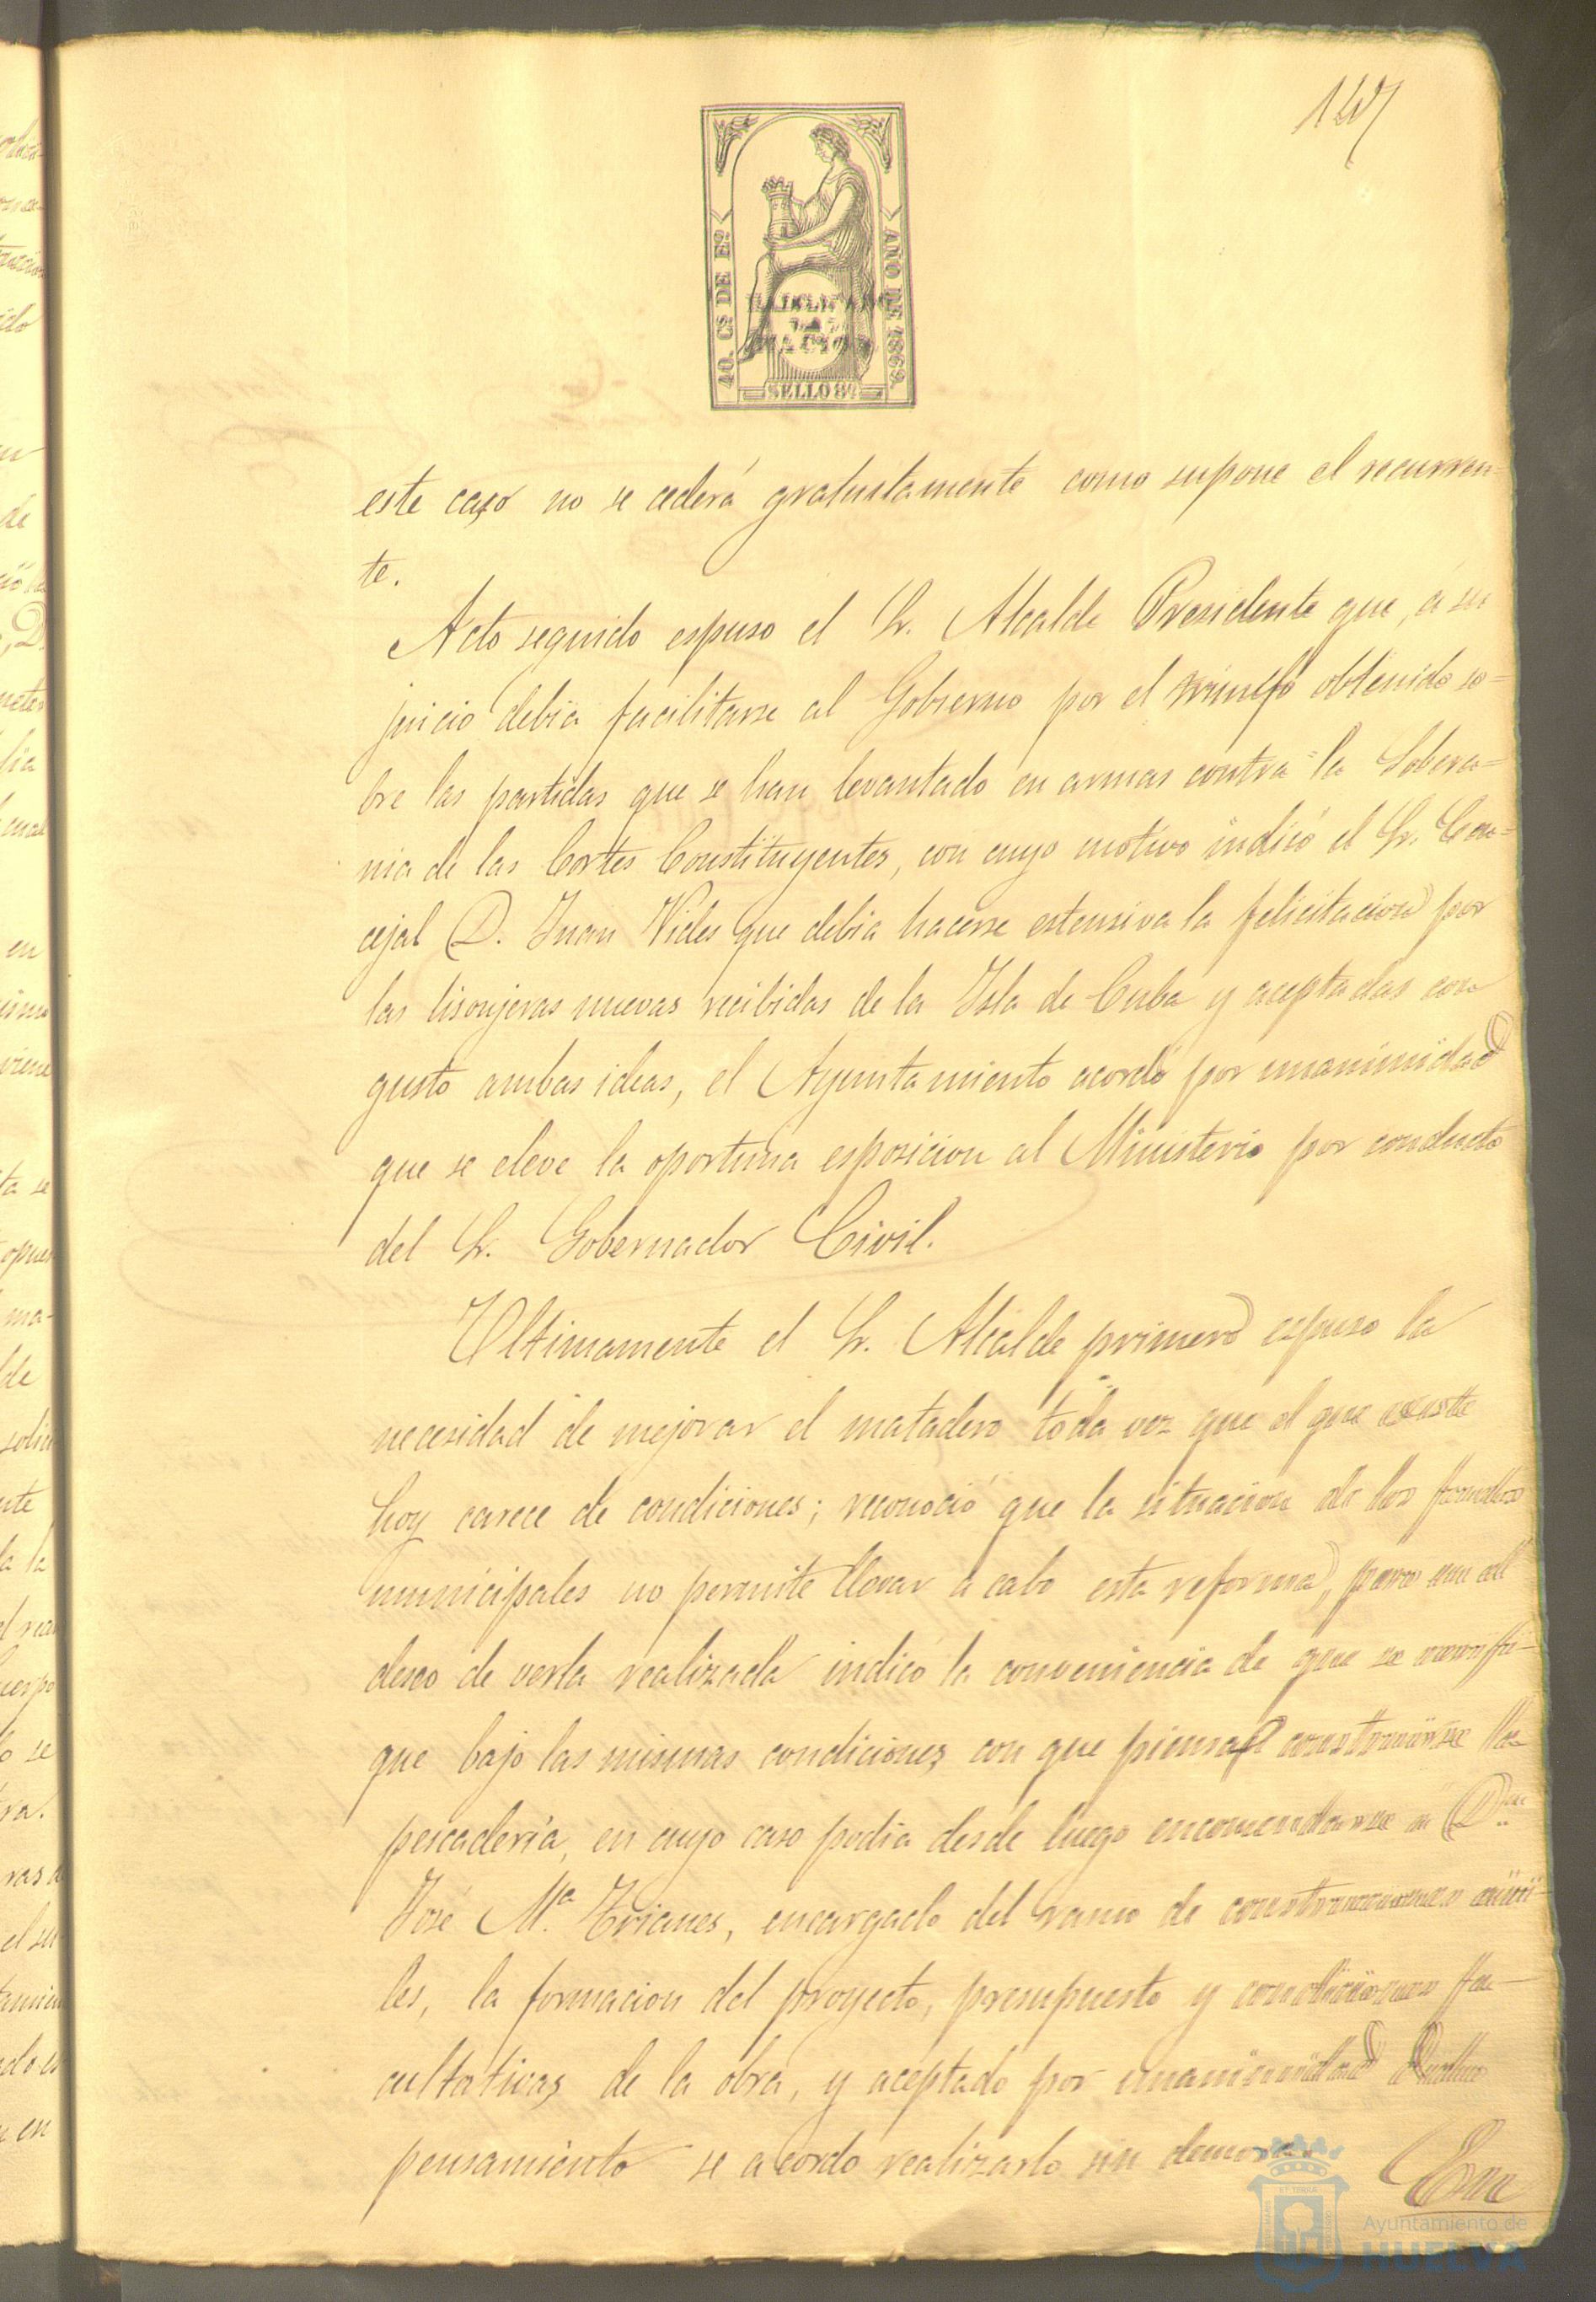 147
40. Cs DE Eo
AÑO DE 1869.
HABILITADO
POR LA
NACION.
SELLO 8º
este caso no se cederá gratuitamente como supone el recurren=
te.
Acto seguido espuso el Sr. Alcalde Presidente que, á su
juicio debia facilitarse al Gobierno por el triunfo obtenido so=
bre las partidas que se han levantado en armas contra la Sobera=
nia de las Cortes Constituyentes, con cuyo motivo indicó el Sr. Con=
cejal D. Juan Vides que debia hacerse estensiva la felicitacion por
las lisonjeras nuevas recibidas de la Isla de Cuba y aceptadas con
gusto ambas ideas, el Ayuntamiento acordó por unanimidad
que se eleve la oportuna esposicion al Ministerio por conducto
del Sr. Gobernador Civil.
Ultimamente el Sr. Alcalde primero espuso la
necesidad de mejorar el matadero toda vez que el que existe
hoy carece de condiciones; reconoció que la situacion de los fondos
municipales no permite llevar á cabo esta reforma, pero en el
deseo de verla realizada indicó la conveniencia de que se verifi-
que bajo las mismas condiciones con que piensa construirse la
pescaderia, en cuyo caso podia desde luego encomendarse á Dn
José Mª Trianes, encargado del ramo de construcciones civi-
les, la formacion del proyecto, presupuesto y condiciones fa-
cultativas de la obra, y aceptado por unanimidad dicho
pensamiento se acordó realizarlo sin demora. En
Ayuntamiento de
HUELVA